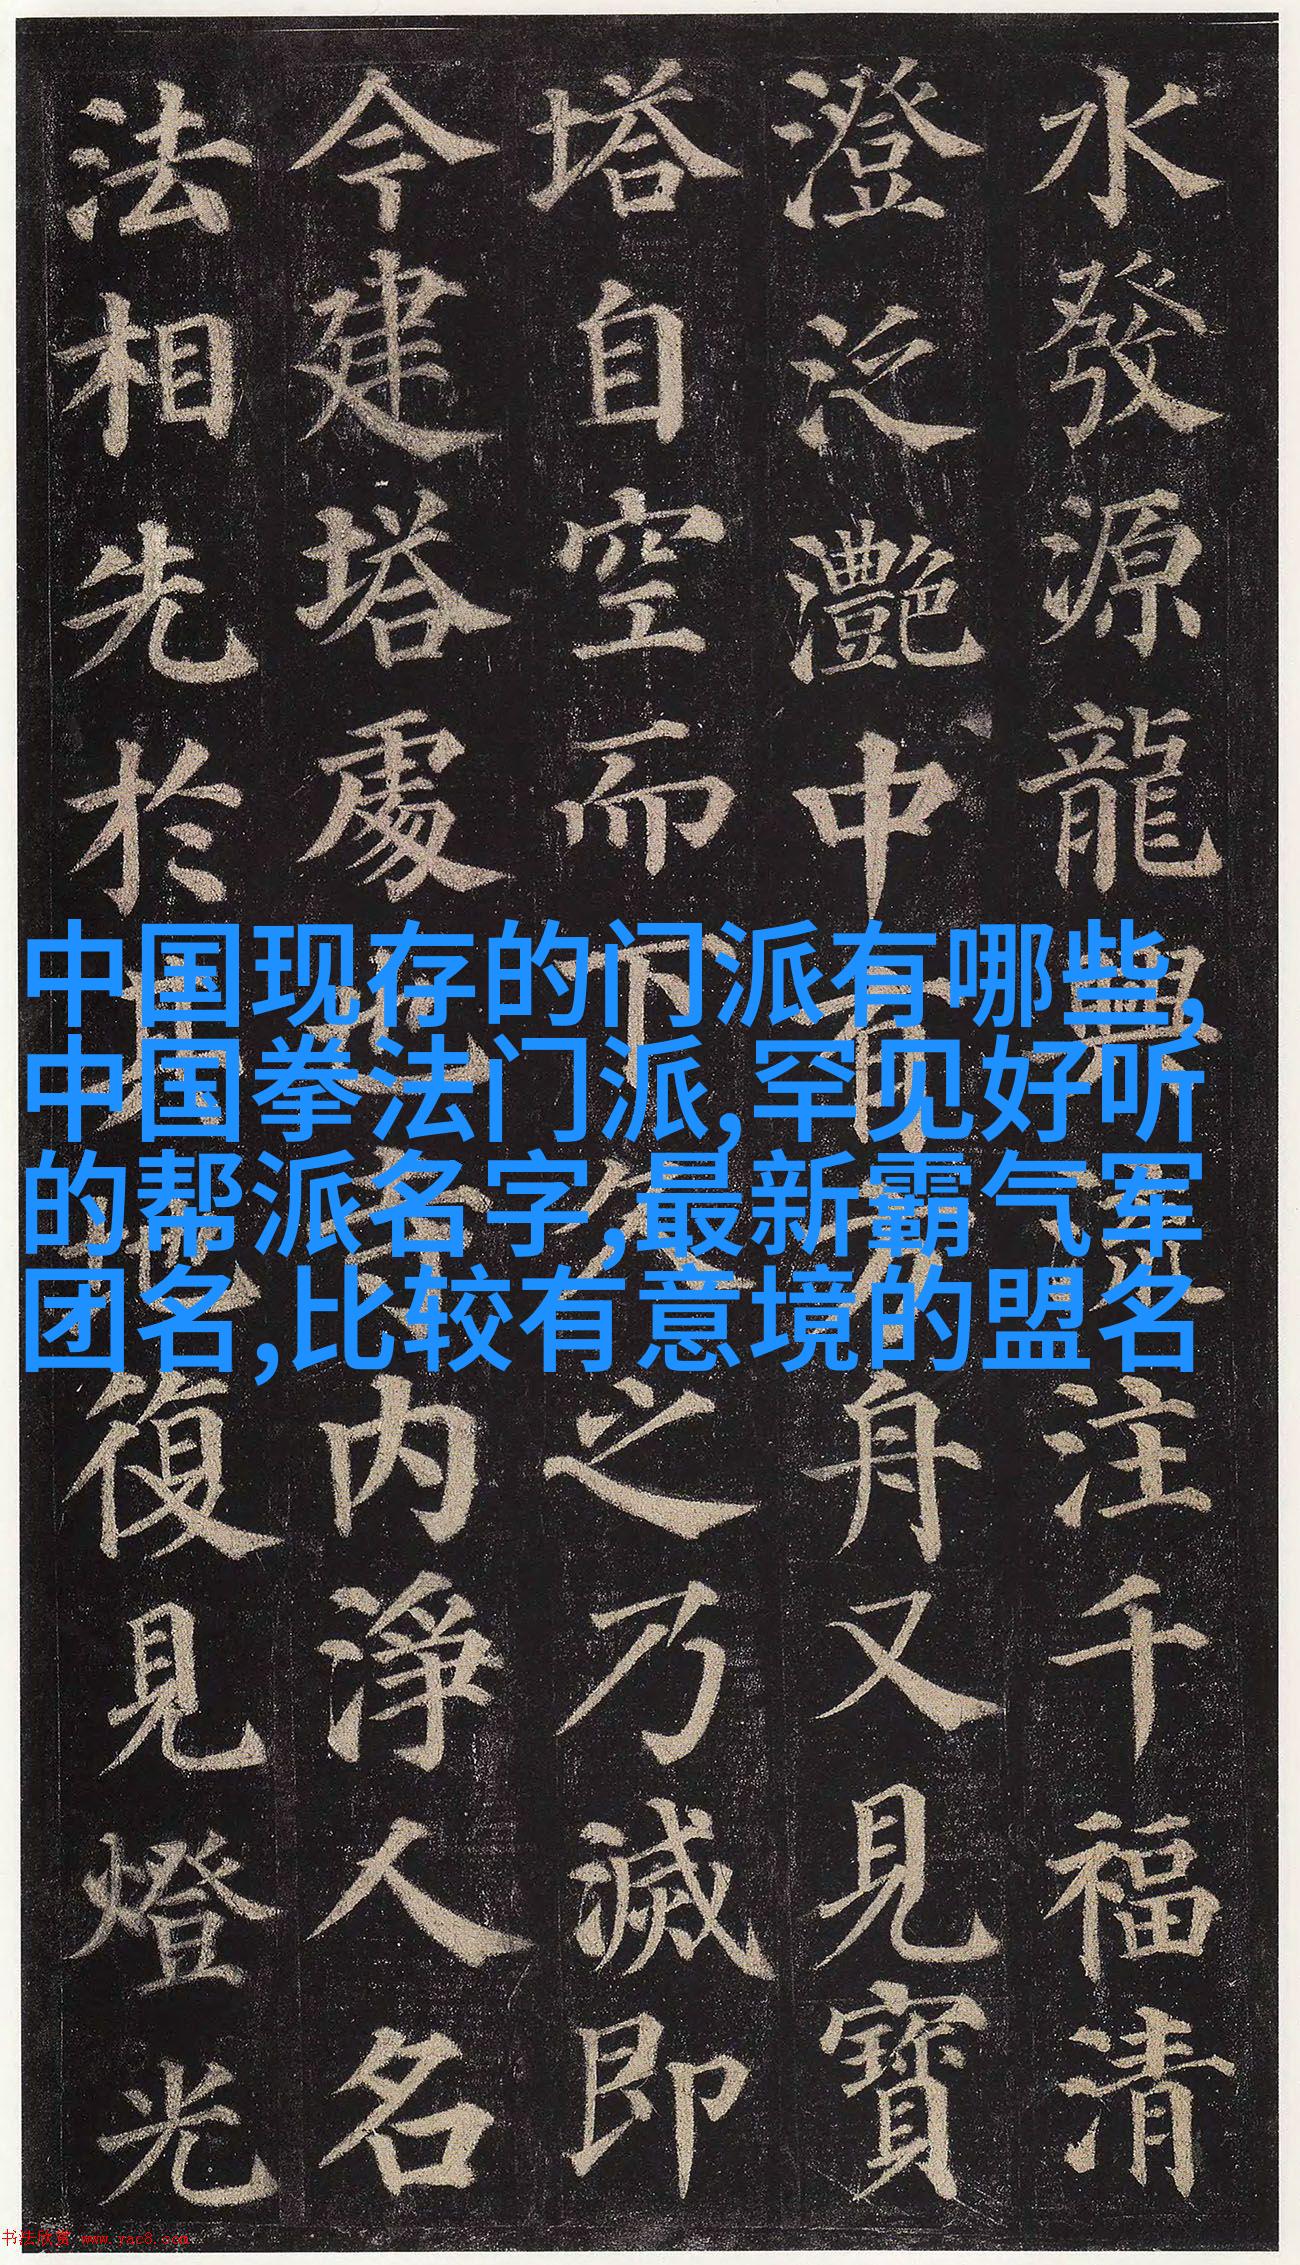 水發源龍興流注千福清
澄泛灩中有方舟又見寶
塔自空而下久之乃滅即
今建塔處也寺内淨人名
法相先於其地復見燈光
中国现存的门派有哪些,
中国拳法门派,罕见好听
的帮派名字,最新霸气军
团名,比较有意境的盟名
书法欣赏 www.yac8.com